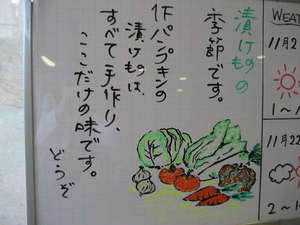 漬けものの
季節です。
パンプキンの
漬けものは、
すべて手作り、
ここだけの味です。
どうぞ
WEA
11月2
1～1
11月22
2～1